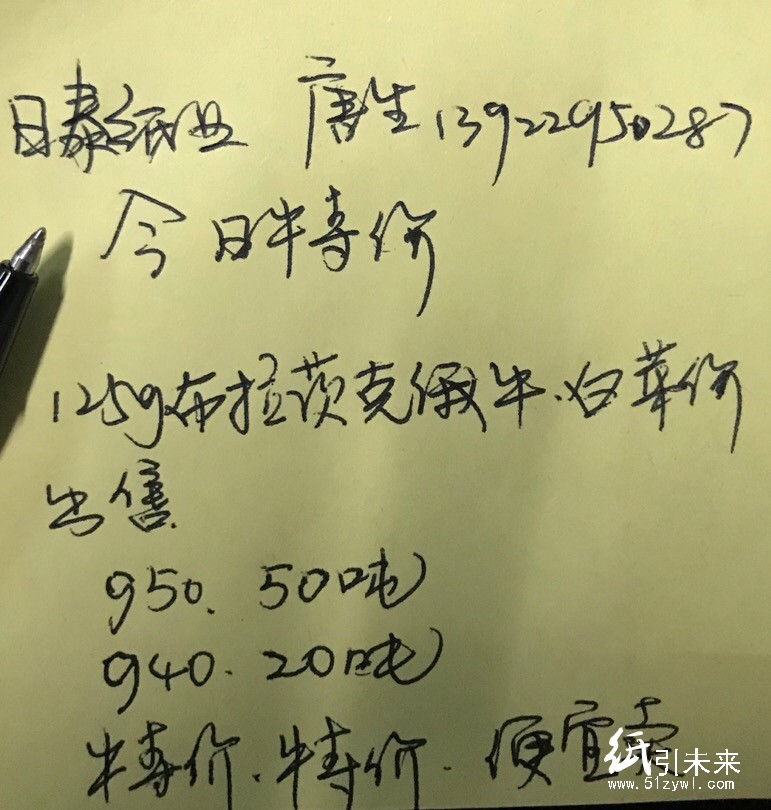 日泰纸业 唐生 13922950287
今日特价
125g布拉茨克俄牛.白菜价
出售
950. 50吨
940. 20吨
特价.特价.便宜卖
纸引未来
www.51zywl.com